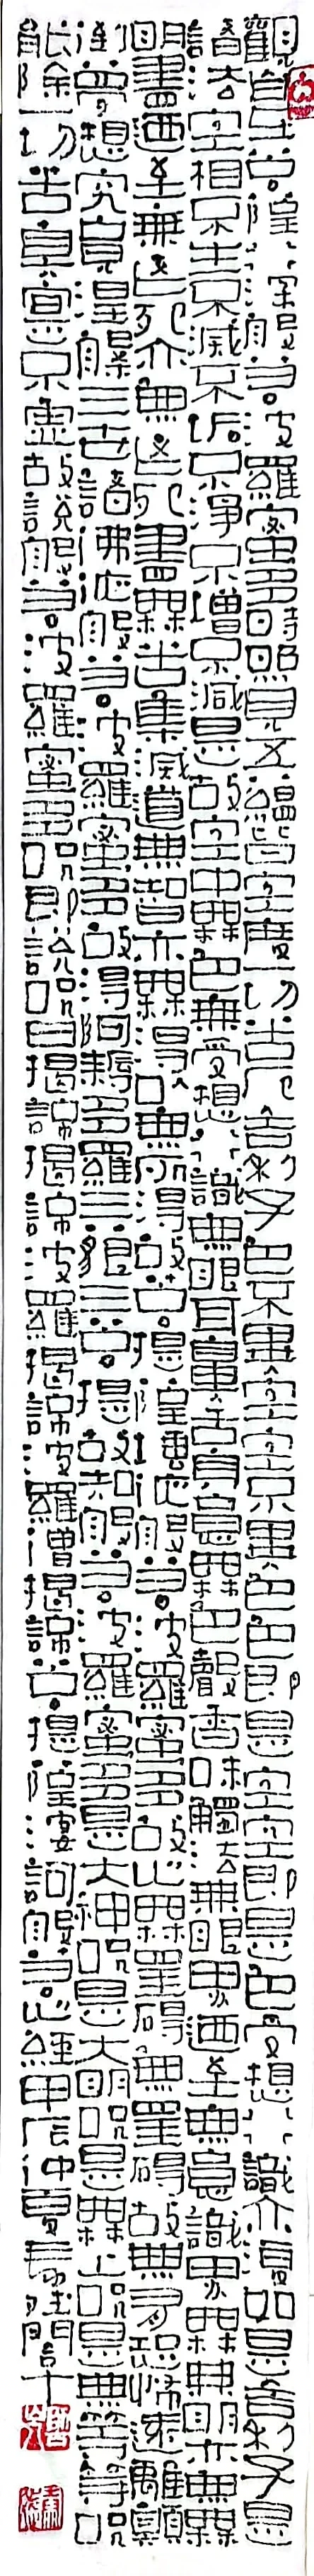 觀自在菩薩行深般若波羅蜜多時照見五蘊皆空度一切苦厄舍利子色不異空空不異色色即是空空即是色受想行識亦復如是舍利子是
諸法空相不生不滅不垢不淨不增不減是故空中無色無受想行識無眼耳鼻舌身意無色聲香味觸法無眼界迺至無意識界無無明亦無無
明盡迺至無老死亦無老死盡無苦集滅道無智亦無得以無所得故菩提薩埵依般若波羅蜜多故心無罣礙無罣礙故無有恐怖遠離顛
倒夢想究竟涅槃三世諸佛依般若波羅蜜多故得阿耨多羅三藐三菩提故知般若波羅蜜多是大神咒是大明咒是無上咒是無等等咒
能除一切苦真實不虛故說般若波羅蜜多咒即說咒曰揭諦揭諦波羅揭諦波羅僧揭諦菩提薩婆訶般若心經甲辰仲夏